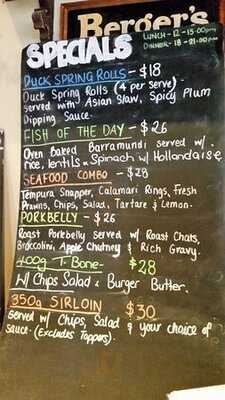 Berger's
LUNCH - 12 - 15:00pm
DINNER - 18 - 21:00pm
SPECIALS
DUCK SPRING ROLLS - $18
Duck Spring Rolls (4 per serve)
served with Asian Slaw, Spicy Plum
Dipping Sauce.
FISH OF THE DAY - $26
Oven Baked Barramundi served w/
rice, lentils & Spinach w/ Hollandaise
SEAFOOD COMBO - $28
Tempura Snapper, Calamari Rings, Fresh
Prawns, Chips, Salad, Tartare & Lemon.
PORKBELLY - $26
Roast Porkbelly Served w/ Roast Chats,
Broccolini, Apple Chutney & Rich Gravy.
400g T-Bone - $28
w/ Chips Salad & Burger Butter.
350g SIRLOIN $30
Served w/ Chips, Salad & your choice of
Sauce. (Excludes Toppers).